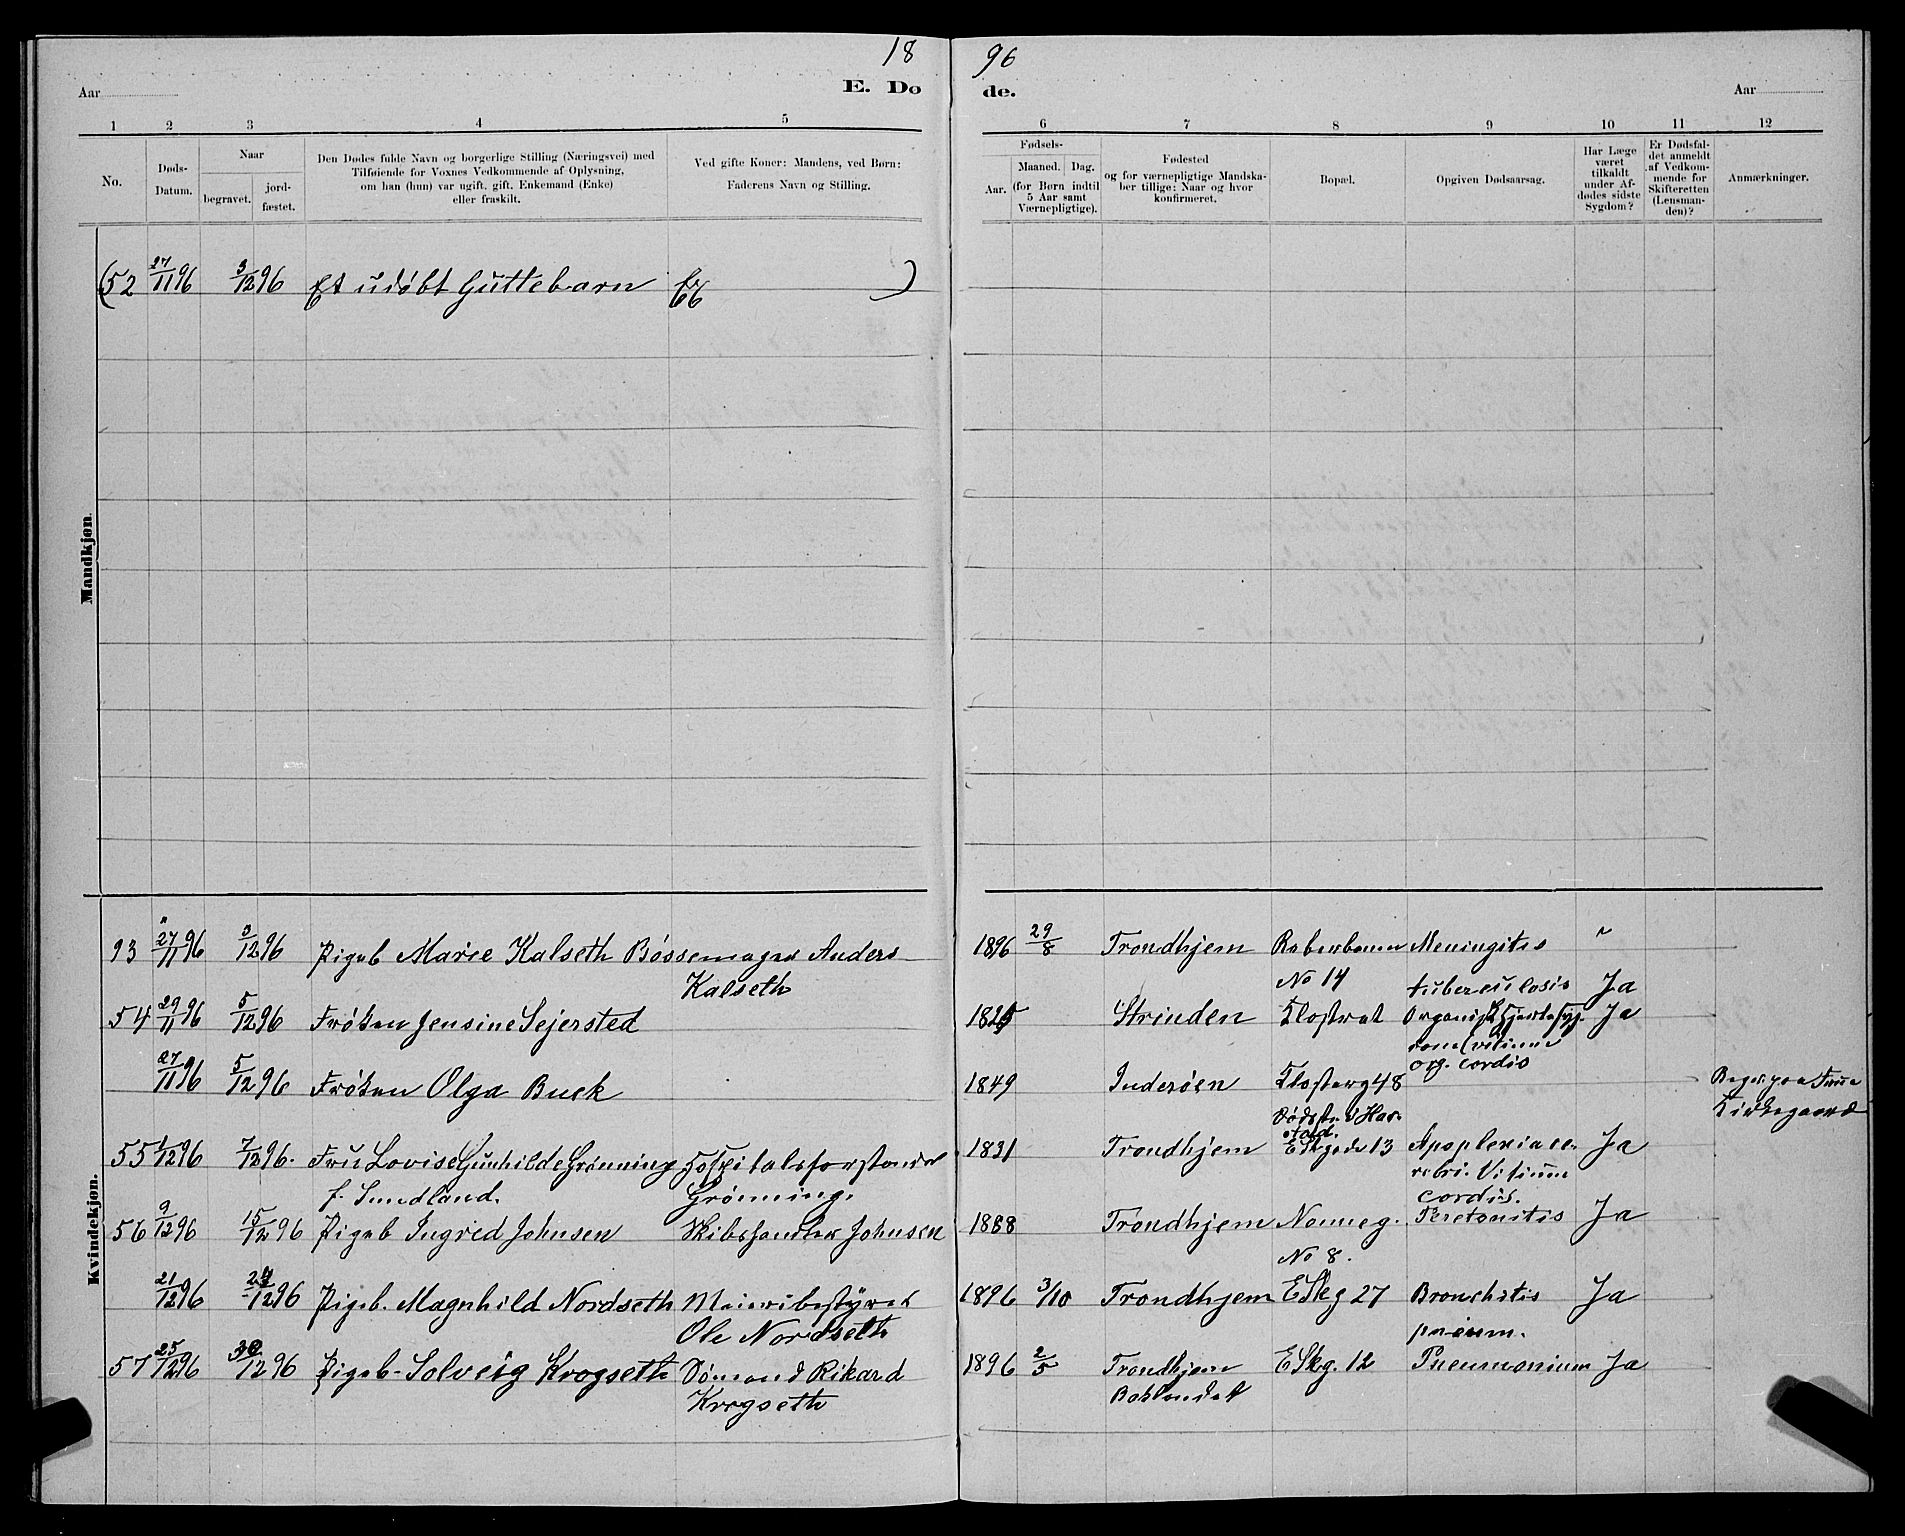 18 96
Aar E. Dø de. Aar
1 2 3 4 5 6 7 8 9 10 11 12
No.
Døds-
Datum.
Naar
begravet.
jord-
fæstet.
Den Dødes fulde Navn og borgerlige Stilling (Næringsvei) med
Tilføiende for Voxnes Vedkommende af Oplysning,
om han (hun) var ugift, gift, Enkemand (Enke)
eller fraskilt.
Ved gifte Koner: Mandens, ved Børn:
Faderens Navn og Stilling.
Fødsels-
Aar.
Maaned. Dag.
(for Børn indtil
5 Aar samt
Værnepligtige).
Fødested
og for værnepligtige Mandska-
ber tillige: Naar og hvor
konfirmeret.
Bopæl.
Opgiven Dødsaarsag.
Har Læge
været
tilkaldt
under Af-
dødes sidste
Sygdom?
Er Dødsfal-
det anmeldt
af Vedkom-
mende for
Skifteretten
(Lensman-
den)?
Anmærkninger.
Mandkjøn.
(52 27/11 96 3/12 96 Et udøbt Guttebarn )
Kvindekjøn.
93 27/11 96 3/12 96 Pigeb Marie Kalseth Bøssemager Anders 1896 29/8 Trondhjem Meningitis
Kalseth No 14 tuberculosis Ja
54 29/11 96 5/12 96 Frøken Jensine Sejersted 1825 Strinden Organisk Hjertesyg- Ja
dom (vitium
org. cordis
27/11 96 5/12 96 Frøken Olga Buck 1849 Inderøen Klosterg 48 Begr. paa Frue
Kirkegaard
55 1/12 96 7/12 96. Fru Lovise Gunhilde Grønning Hospitalsforstander 1831 Trondhjem ESkgade 13 Apoplexia ce- Ja
f. Sundland. Grønning. rebri. Vitium
cordis.
56 9/12 96 15/12 96 Pigeb Ingrid Johnsen Skibshandler Johnsen 1888 Trondhjem Nonneg. Peretonitis Ja
No 8.
21/12 96 /12 96 Pigeb. Magnhild Nordseth Meieribestyrer 1896 3/10 Trondhjem ESkg 27 Bronchitis Ja
Ole Nordseth pneum.
57 25/12 96 30/12 96 Pigeb. Solveig Krogseth Sømand Rikard 1896 2/5 Trondhjem ESkg. 12 Pneumonium Ja
Krogseth Baklandet